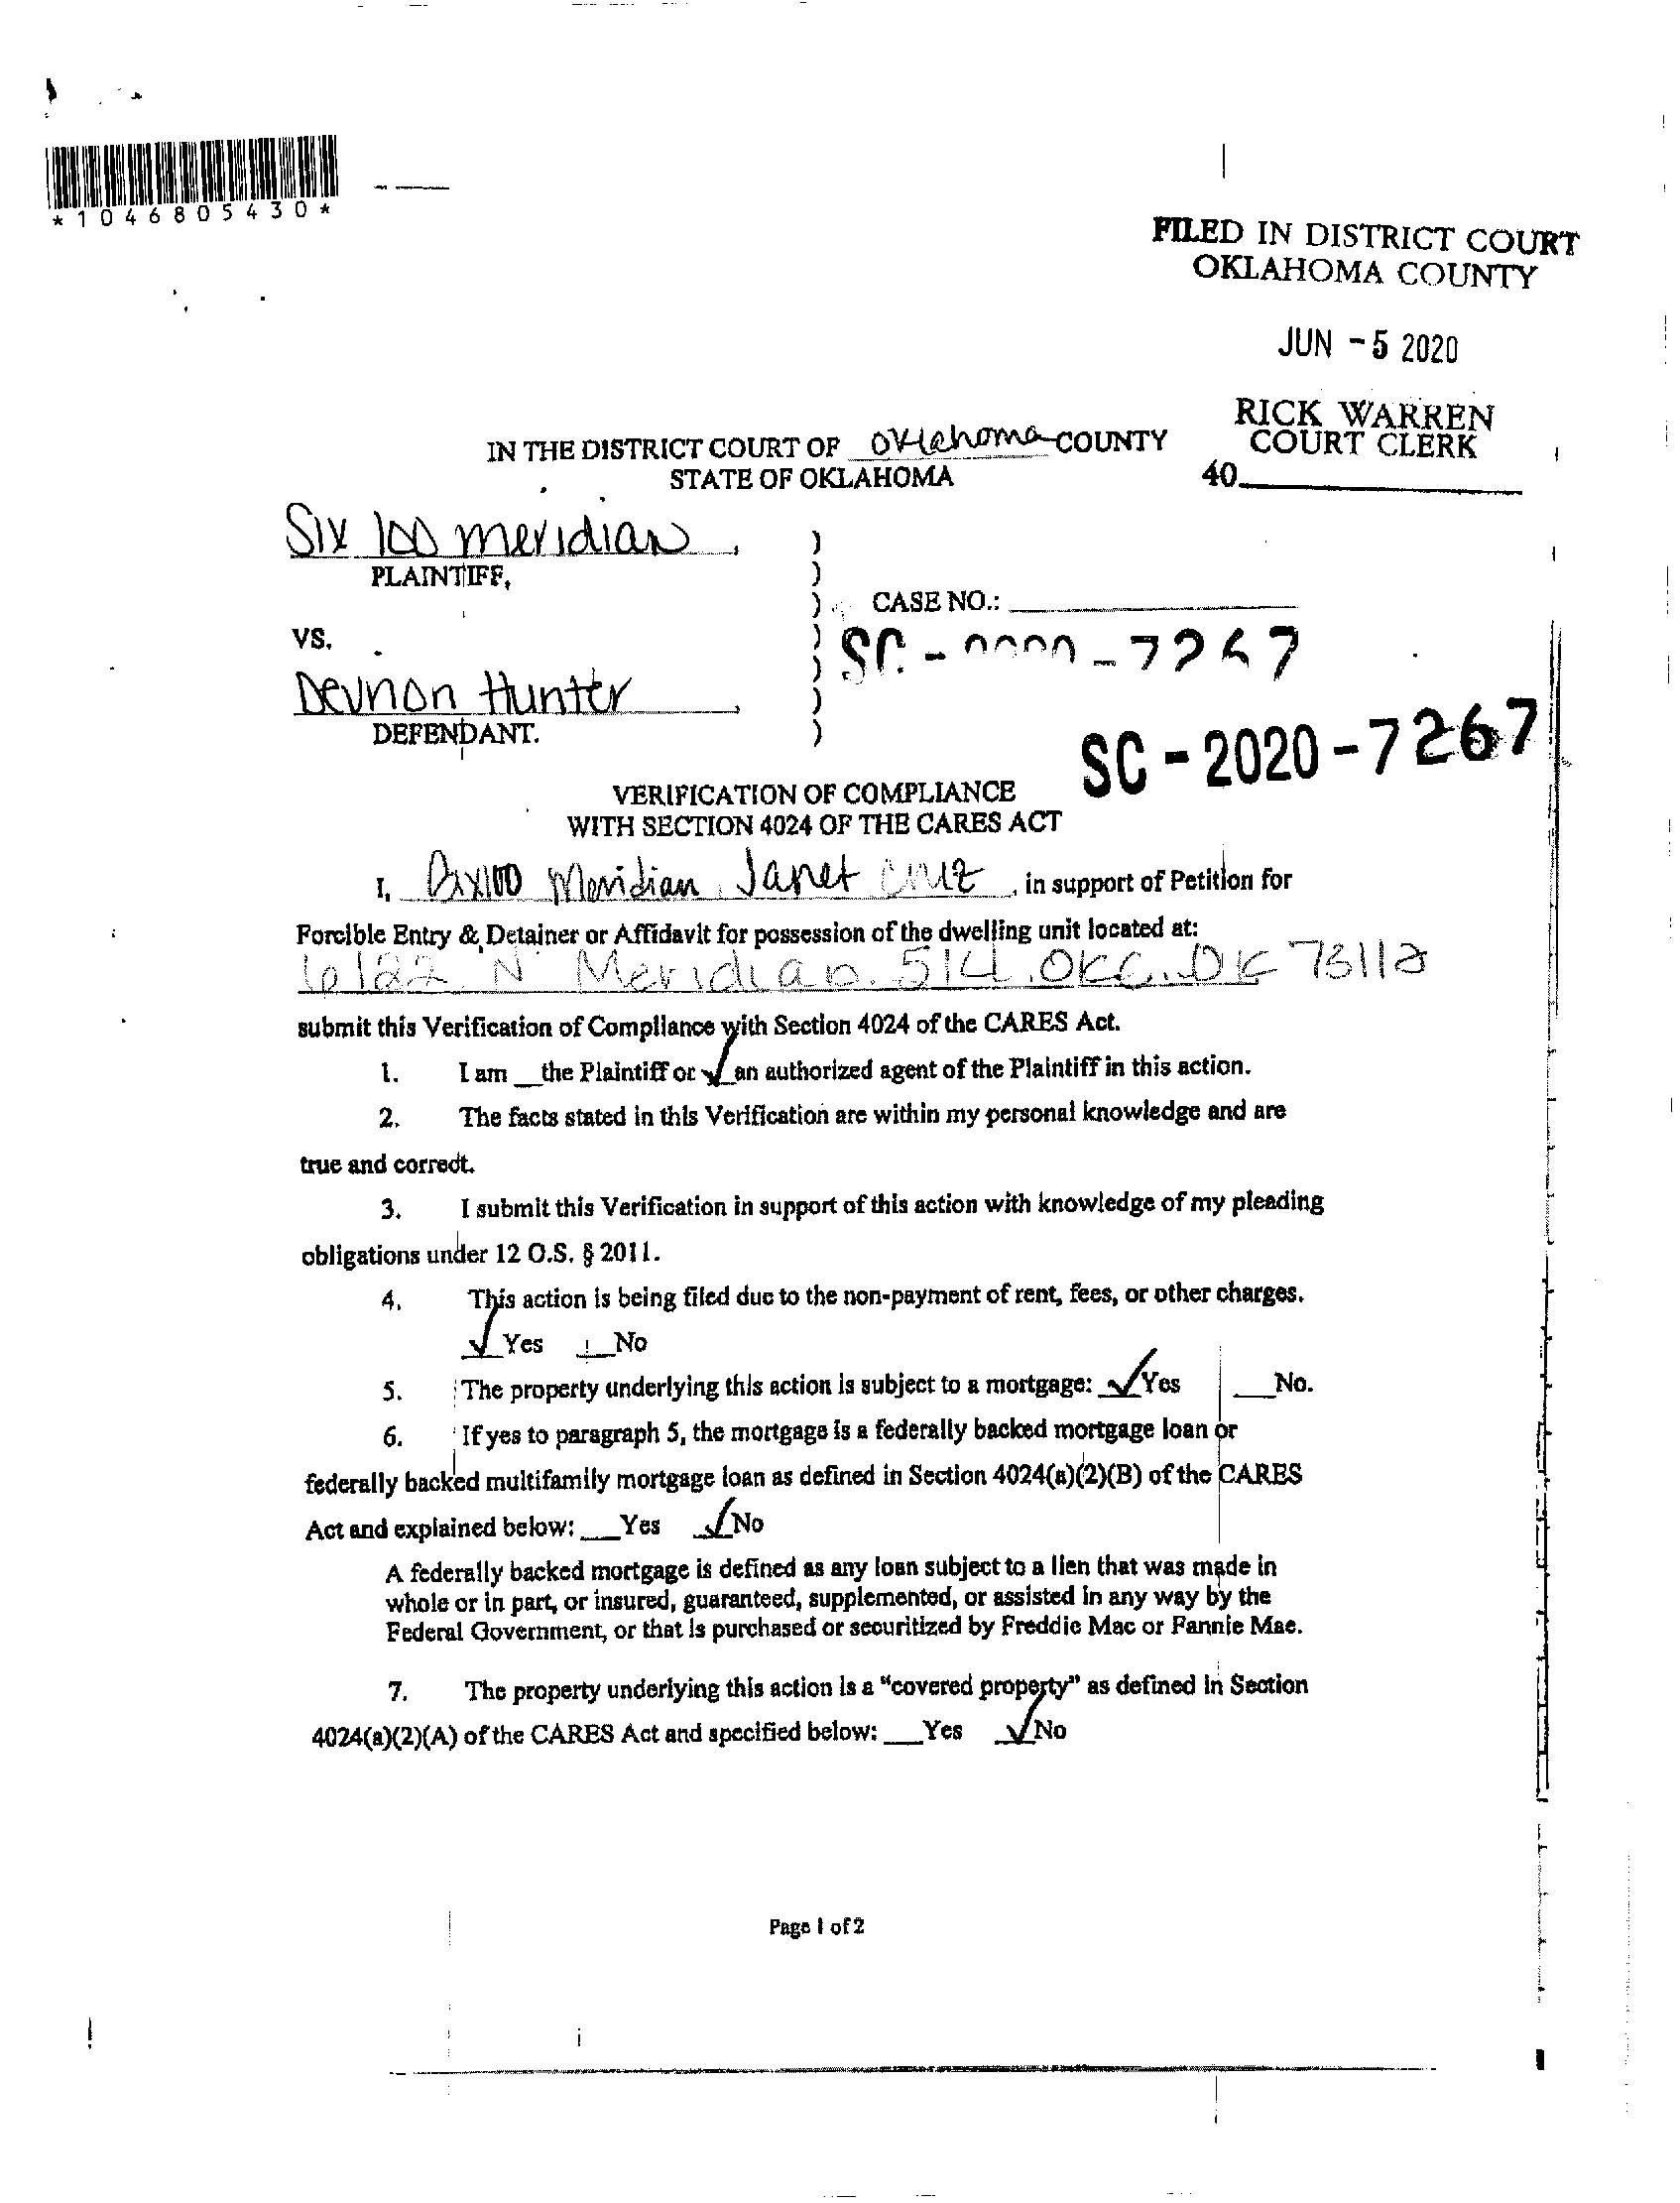 *1046805430*
FILED IN DISTRICT COURT
OKLAHOMA COUNTY
JUN - 5 2020
RICK WARREN
COURT CLERK
40
IN THE DISTRICT COURT OF Oklahoma COUNTY
STATE OF OKLAHOMA
Six 100 meridian,
PLAINTIFF,
CASE NO.:
VS.
SC - -7267
Devnon Hunter,
DEFENDANT.
SC - 2020 - 7267
VERIFICATION OF COMPLIANCE
WITH SECTION 4024 OF THE CARES ACT
I, Six100 Meridian, Janet Cruz, in support of Petition for
Forcible Entry & Detainer or Affidavit for possession of the dwelling unit located at:
6122 N Meridian. 514. OKC. OK 73112
submit this Verification of Compliance with Section 4024 of the CARES Act.
1. I am __the Plaintiff or ✓ an authorized agent of the Plaintiff in this action.
2. The facts stated in this Verification are within my personal knowledge and are
true and correct.
3. I submit this Verification in support of this action with knowledge of my pleading
obligations under 12 O.S. § 2011.
4. This action is being filed due to the non-payment of rent, fees, or other charges.
✓ Yes __No
5. The property underlying this action is subject to a mortgage: ✓ Yes __No.
6. If yes to paragraph 5, the mortgage is a federally backed mortgage loan or
federally backed multifamily mortgage loan as defined in Section 4024(a)(2)(B) of the CARES
Act and explained below: __Yes ✓ No
A federally backed mortgage is defined as any loan subject to a lien that was made in
whole or in part, or insured, guaranteed, supplemented, or assisted in any way by the
Federal Government, or that is purchased or securitized by Freddie Mac or Fannie Mae.
7. The property underlying this action is a "covered property" as defined in Section
4024(a)(2)(A) of the CARES Act and specified below: __Yes ✓ No
Page 1 of 2